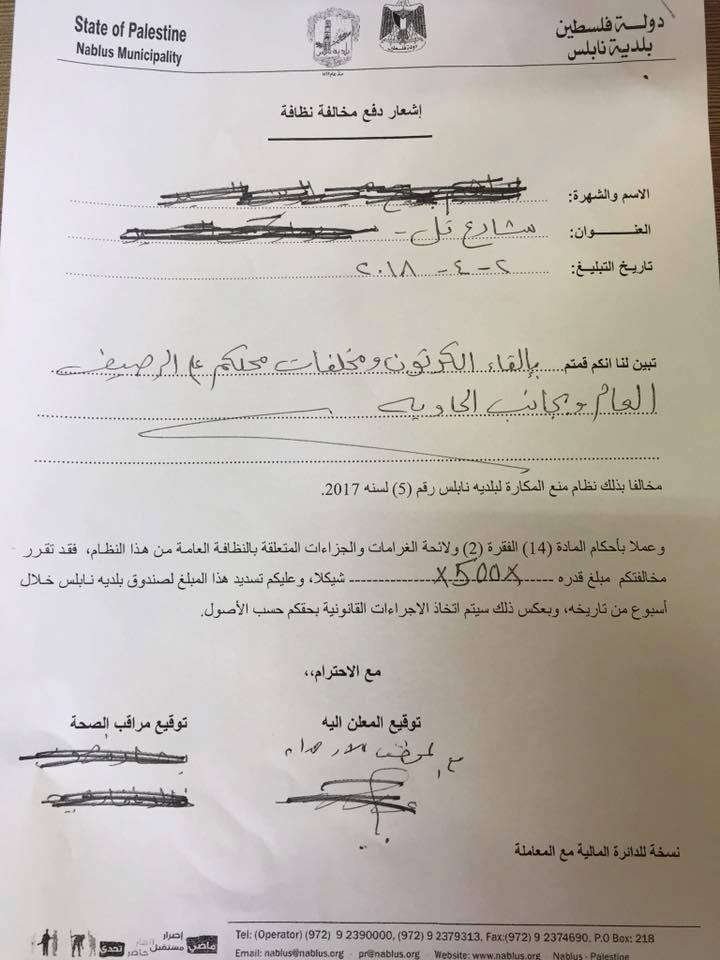 State of Palestine
Nablus Municipality
دولة فلسطين
بلدية نابلس
إشعار دفع مخالفة نظافة
الاسم والشهرة:
العنوان: شارع تل -
تاريخ التبليغ: ٢ - ٤ - ٢٠١٨
تبين لنا انكم قمتم بإلقاء الكرتون ومخلفات محلكم على الرصيف
العام وبجانب الحاويه
مخالفا بذلك نظام منع المكارة لبلديه نابلس رقم (5) لسنه 2017.
وعملا بأحكام المادة (14) الفقرة (2) ولائحة الغرامات والجزاءات المتعلقة بالنظافة العامة من هذا النظام، فقد تقرر
مخالفتكم مبلغ قدره x500x شيكلا، وعليكم تسديد هذا المبلغ لصندوق بلديه نابلس خلال
أسبوع من تاريخه، وبعكس ذلك سيتم اتخاذ الاجراءات القانونية بحقكم حسب الأصول.
مع الاحترام،،
توقيع المعلن اليه
توقيع مراقب الصحة
نسخة للدائرة المالية مع المعاملة
إصرار
ماضي مستقبل حاضر تحدي
Tel: (Operator) (972) 9 2390000, (972) 9 2379313, Fax:(972) 9 2374690. P.O Box: 218
Email: nablus@nablus.org · pr@nablus.org · Website: www.nablus.org Nablus - Palestine